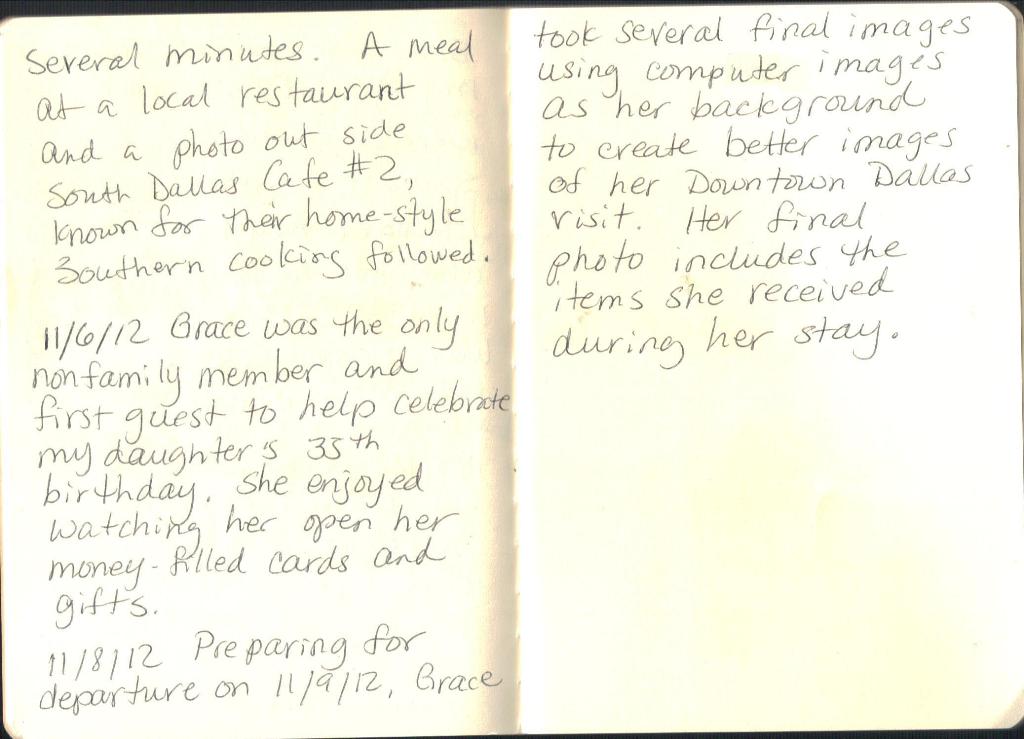 Several minutes. A meal
at a local restaurant
and a photo out side
South Dallas Cafe #2,
known for their home-style
Southern cooking followed.
11/6/12 Grace was the only
nonfamily member and
first guest to help celebrate
my daughter's 35th
birthday. She enjoyed
watching her open her
money-filled cards and
gifts.
11/8/12 Preparing for
departure on 11/9/12, Grace
took several final images
using computer images
as her background
to create better images
of her Downtown Dallas
visit. Her final
photo includes the
items she received
during her stay.